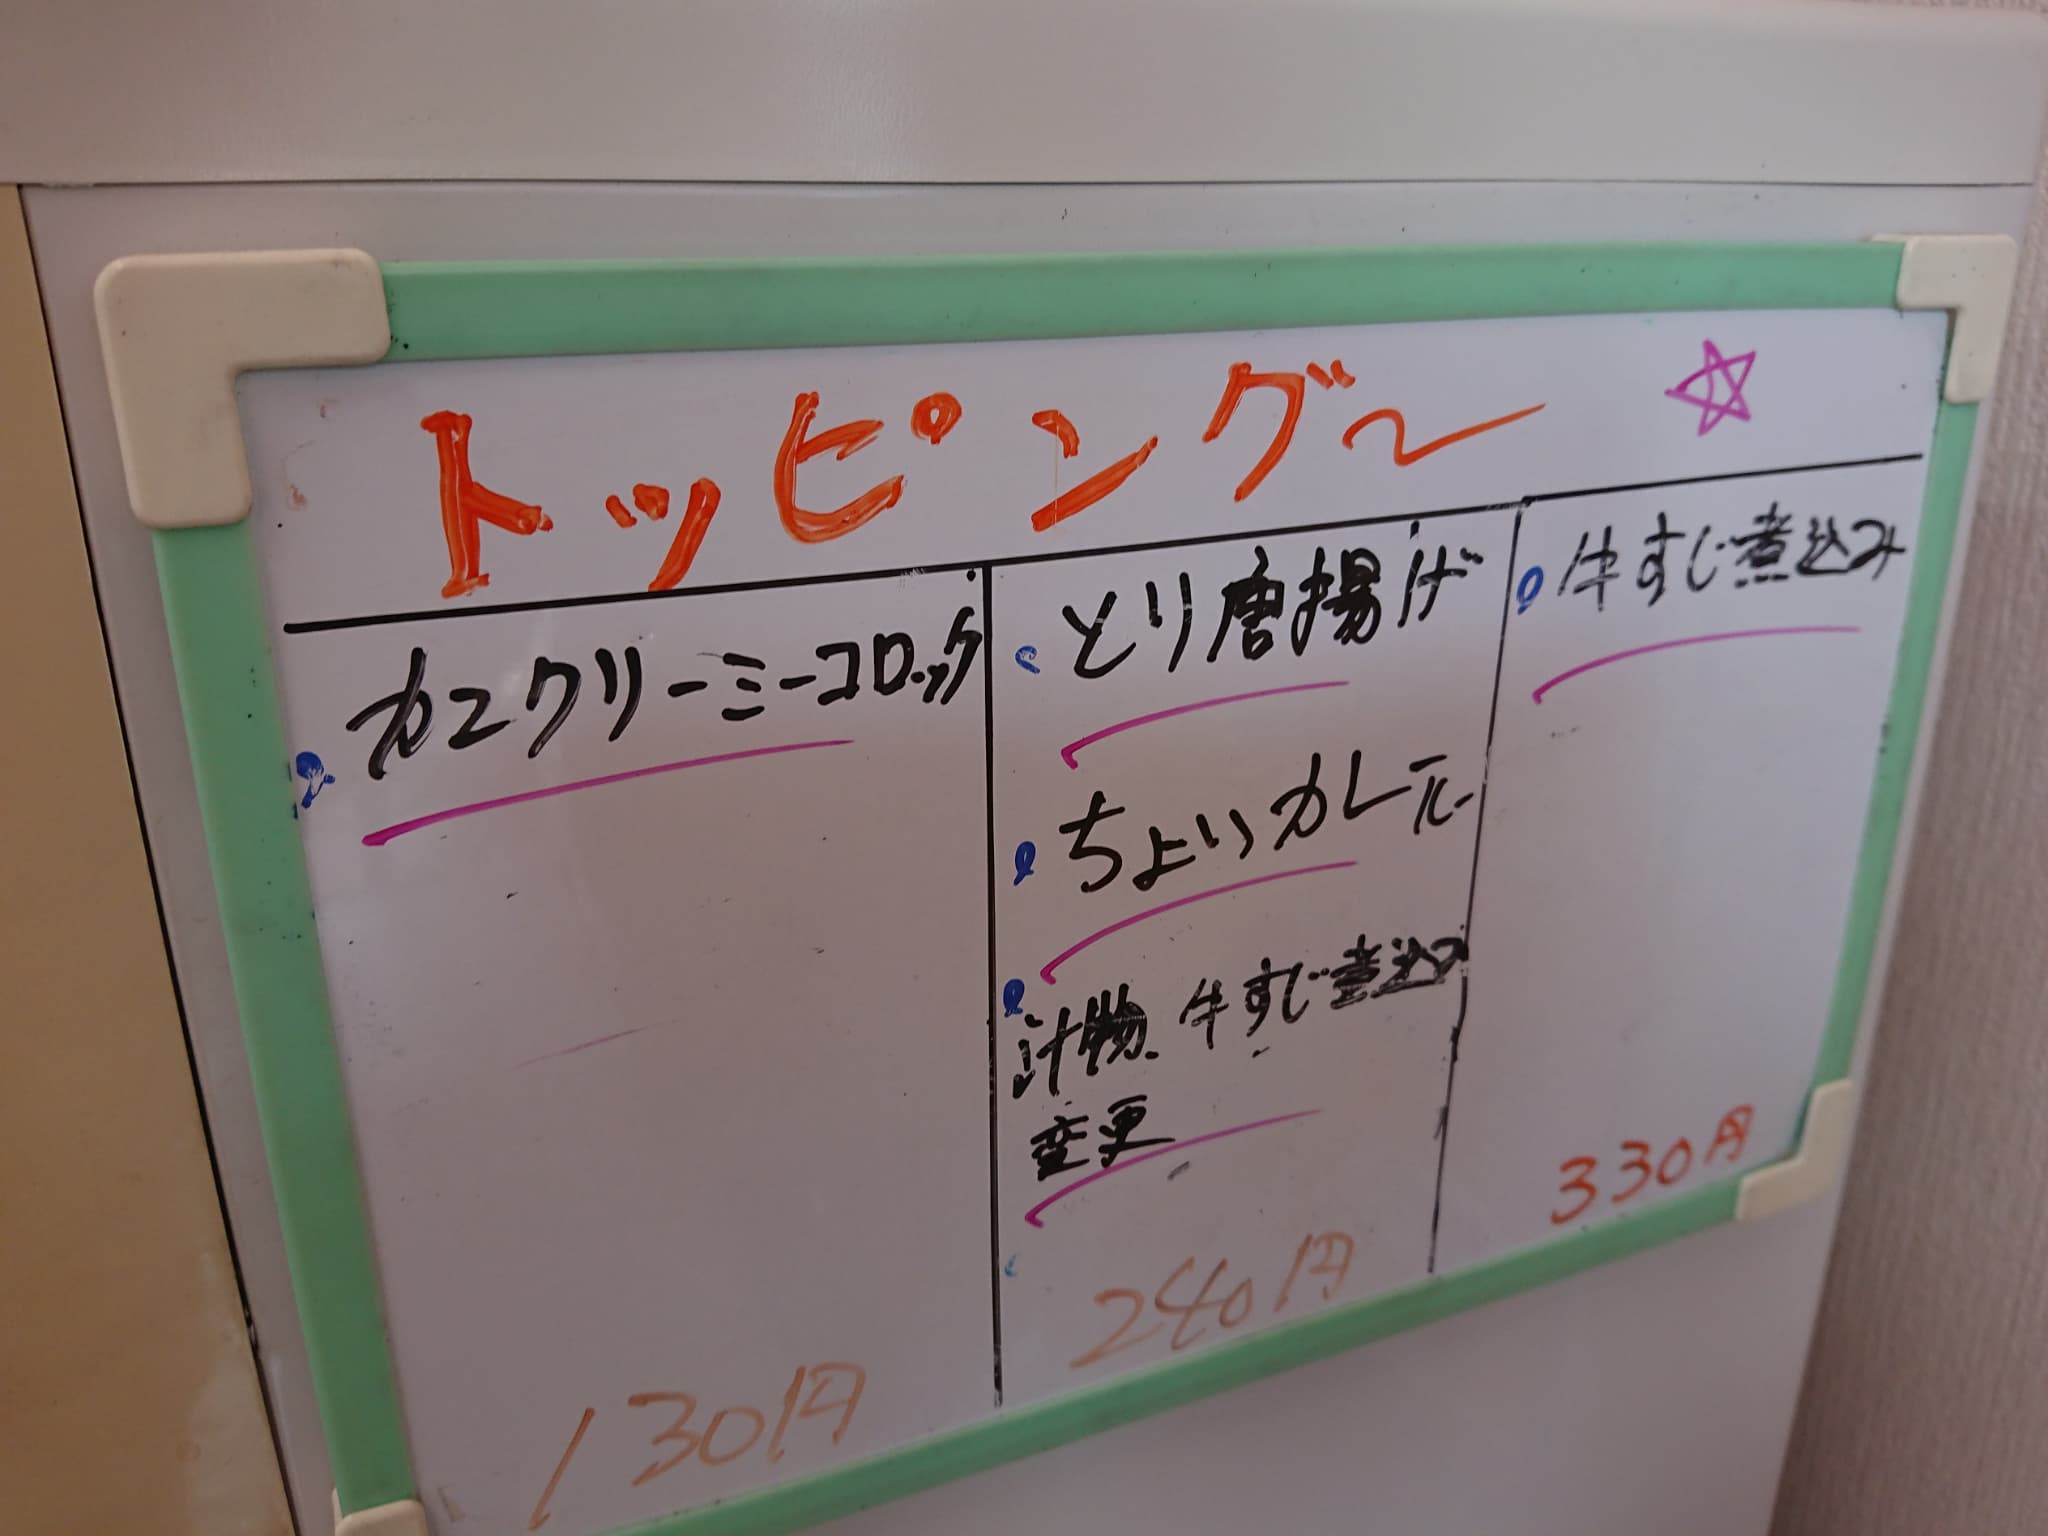 トッピング〜 ☆
カニクリーミーコロッケ
130円
とり唐揚げ
ちょいカレー
汁物 牛すじ煮込み
変更
240円
牛すじ煮込み
330円